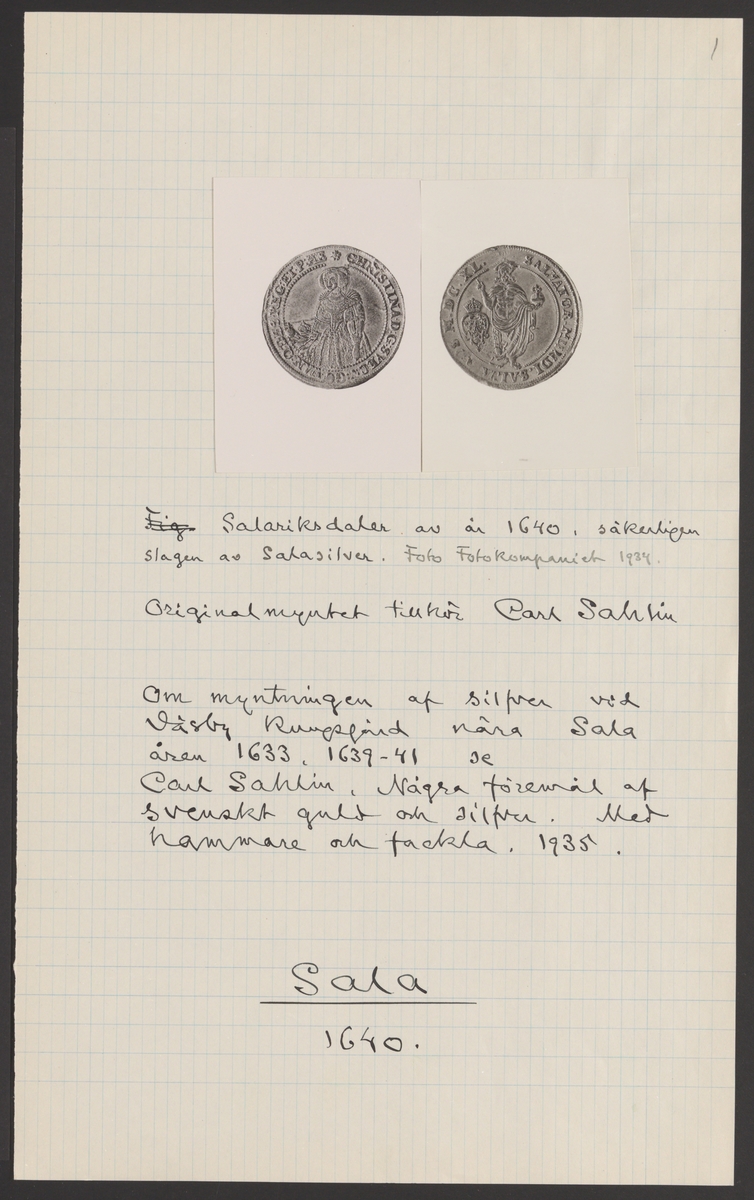 1
CHRISTINA.D.G.SVEC.
SALVATOR.MUNDI.SALVA
M.DC.XL.
Fig. Salariksdaler av år 1640, säkerligen
slagen av Salasilver. Foto Fotokompaniet 1934.
Originalmyntet tillhör Carl Sahlin
Om myntningen af silfver vid
Väsby Kungsgård nära Sala
åren 1633, 1639-41 se
Carl Sahlin, Några föremål af
svenskt guld och silfver. Med
hammare och fackla. 1935.
Sala
1640.